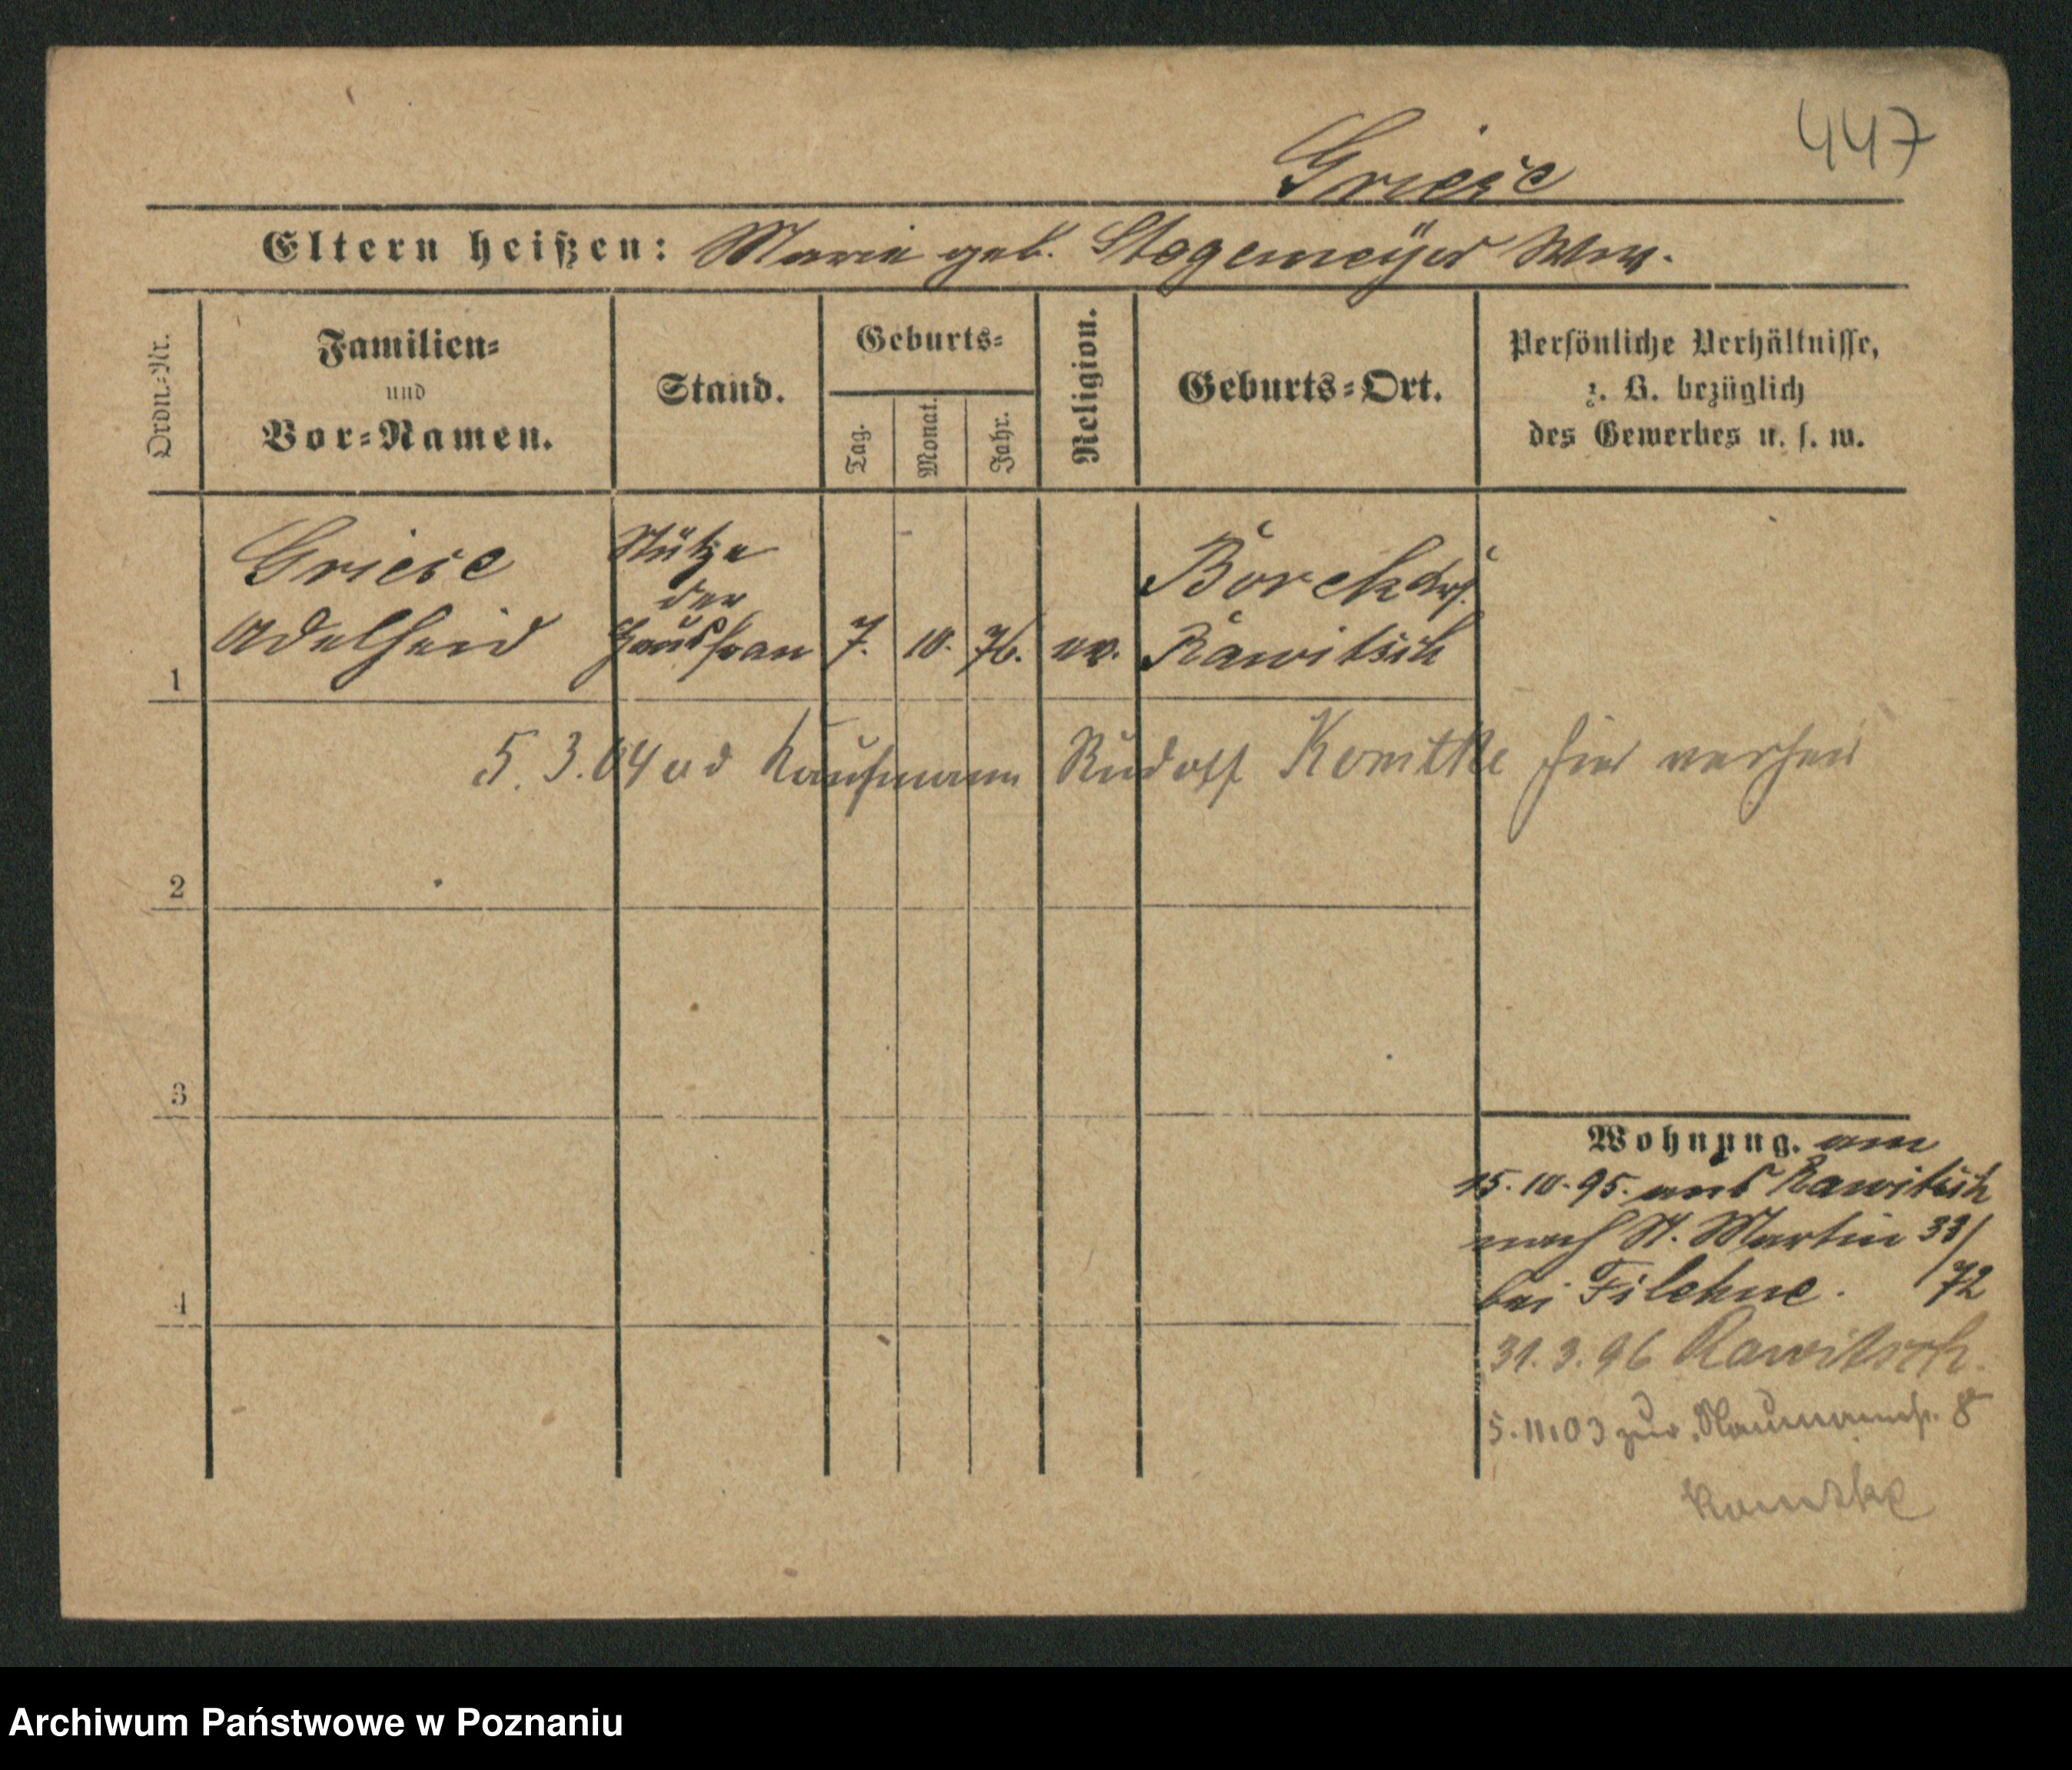 447
Griese
Eltern heißen: Marie geb. Stegemeyer Wwe.
Ordn.=Nr.
Familien=
und
Vor=Namen.
Stand.
Geburts=
Tag.
Monat.
Jahr.
Religion.
Geburts=Ort.
Persönliche Verhältnisse,
z. B. bezüglich
des Gewerbes u. s. w.
1
Griese
Adelheid
Stütze
der
Hausfrau
7.
10.
76.
ev.
Borek
Rawitsch
5.3.04 Kaufmann Rudolf hier verheir
2
3
4
Wohnung. am
15.10.95. aus Rawitsch
nach St. Martin 33/
bei Filehne. 72
31.3.96 Rawitsch.
5.11.03 zur. Naumannstr. 8